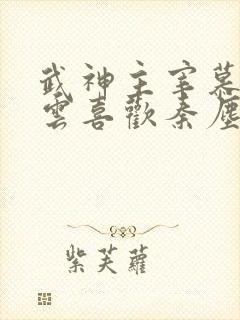 武神主宰慕
雲喜歡秦塵
紫芙蘿